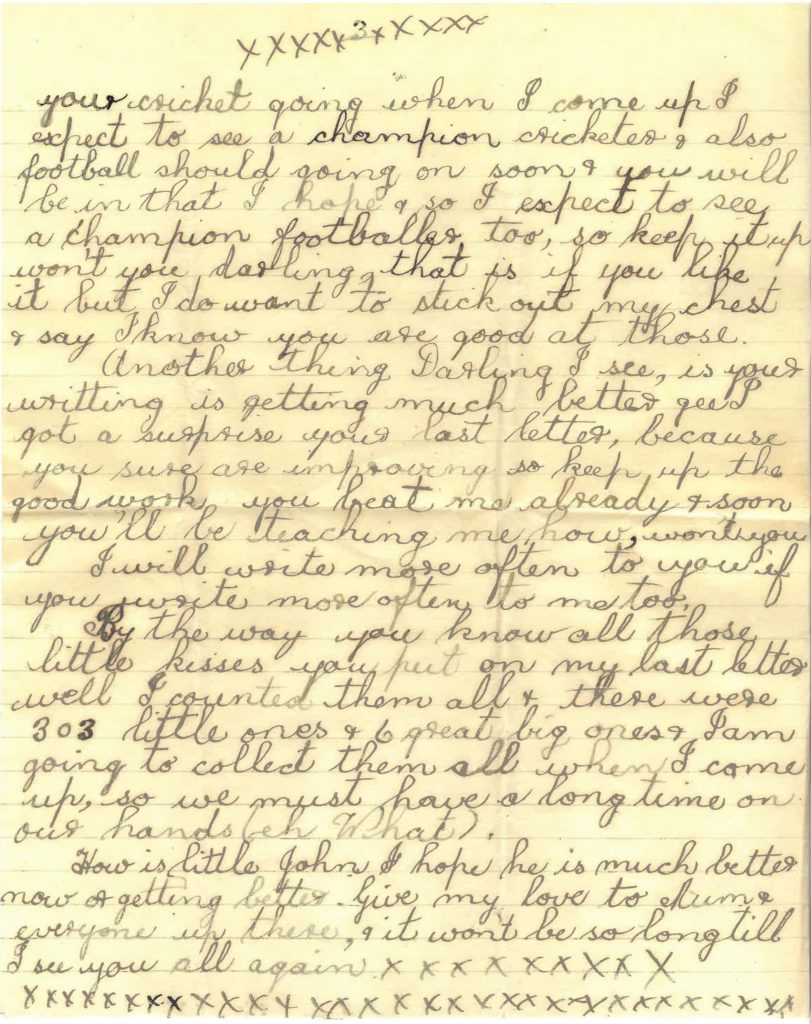 xxxxx 3 xxxxxx
your cricket going when I come up I
expect to see a champion cricketer & also
football should going on soon & you will
be in that I hope & so I expect to see
a champion footballer too, so keep it up
won't you darling, that is if you like
it but I do want to stick out my chest
& say I know you are good at those.
Another thing Darling I see, is your
writting is getting much better gee I
got a surprise your last letter, because
you sure are improving so keep up the
good work you beat me already & soon
you'll be teaching me how, won't you
I will write more often to you if
you write more often to me too.
By the way you know all those
little kisses you put on my last letter
well I counted them all & there were
303 little ones & 6 great big ones & I am
going to collect them all when I come
up, so we must have a long time on
our hands (eh What).
How is little John I hope he is much better
now & getting better. Give my love to Mum &
everyone up there, & it wont be so long till
I see you all again x x x x x x x x x x
xxxxxxxxxxxxxxxxxxxxxxxxxxxxxxxx